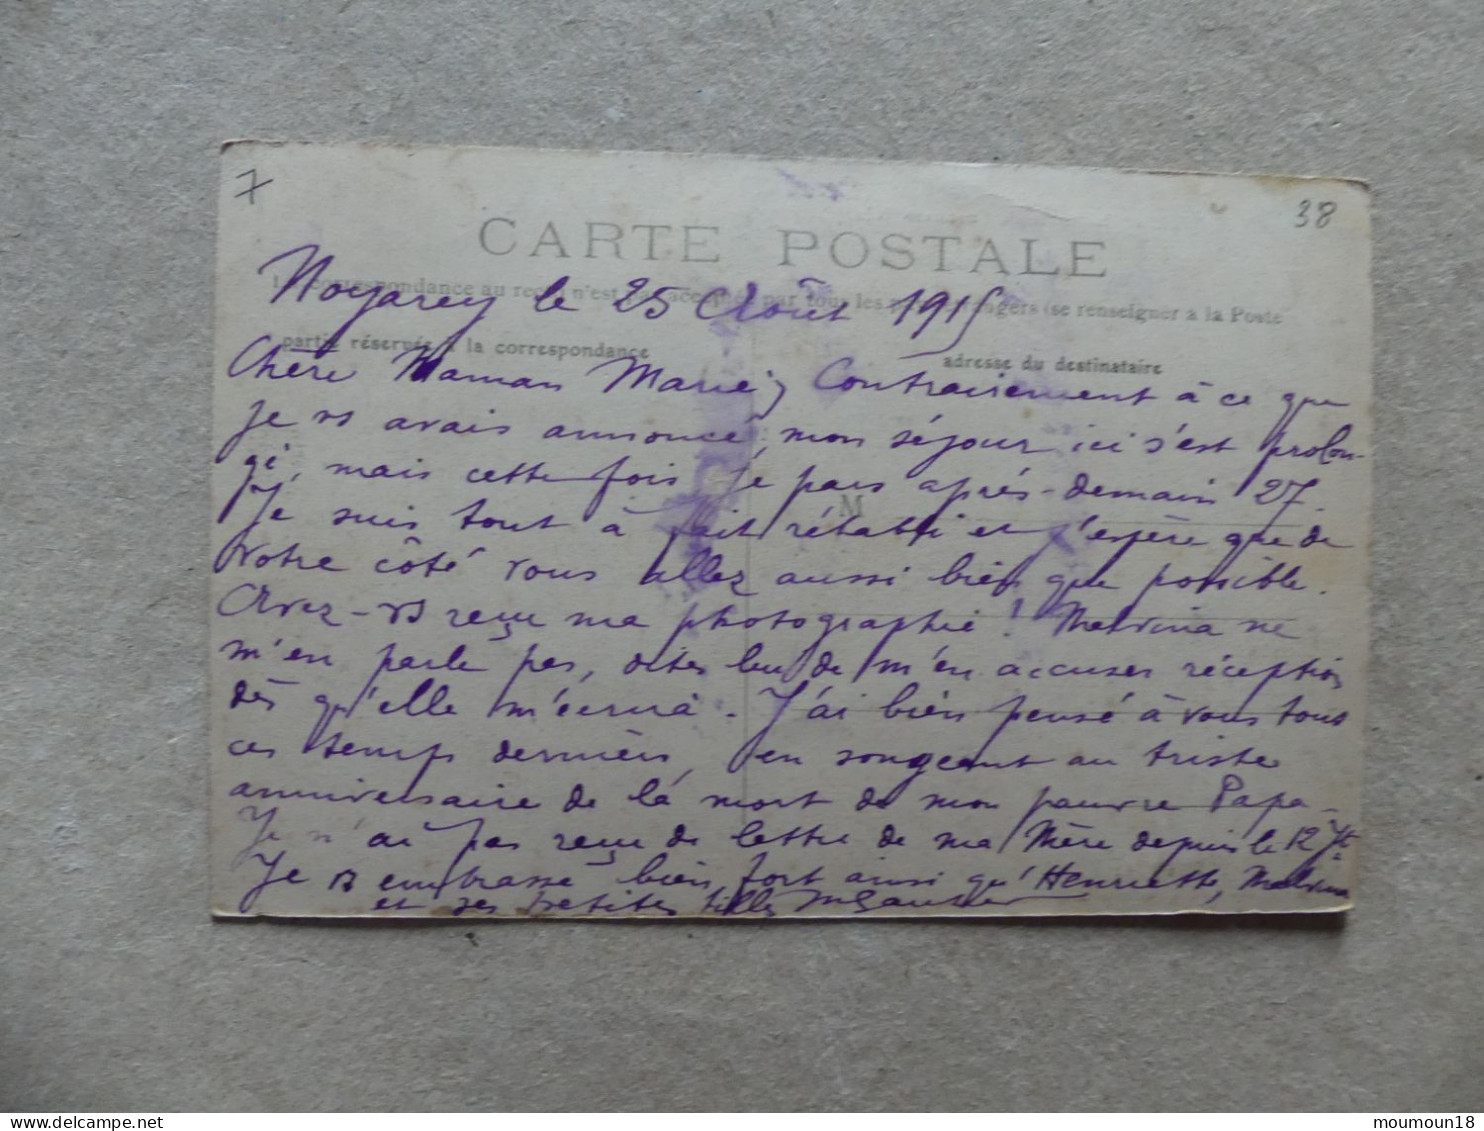 7
38
CARTE POSTALE
La correspondance au recto n'est pas acceptée par tous les pays étrangers (se renseigner à la Poste
partie réservée à la correspondance
adresse du destinataire
M
Noyarey le 25 Août 1915
Chère Maman Marie, Contrairement à ce que
je vs avais annoncé, mon séjour ici s'est prolon-
gé, mais cette fois je pars après-demain 27.
Je suis tout à fait rétabli et j'espère que de
votre côté vous allez aussi bien que possible.
Avez-vs reçu ma photographie! Malvina ne
m'en parle pas, dites lui de m'en accuser réception
dès qu'elle m'écrira. J'ai bien pensé à vous tous
ces temps derniers, en songeant au triste
anniversaire de la mort de mon pauvre Papa-
Je n'ai pas reçu de lettre de ma Mère depuis le 12 Jt
Je vs embrasse bien fort ainsi qu'Henriette, Malvina
et ses petites filles